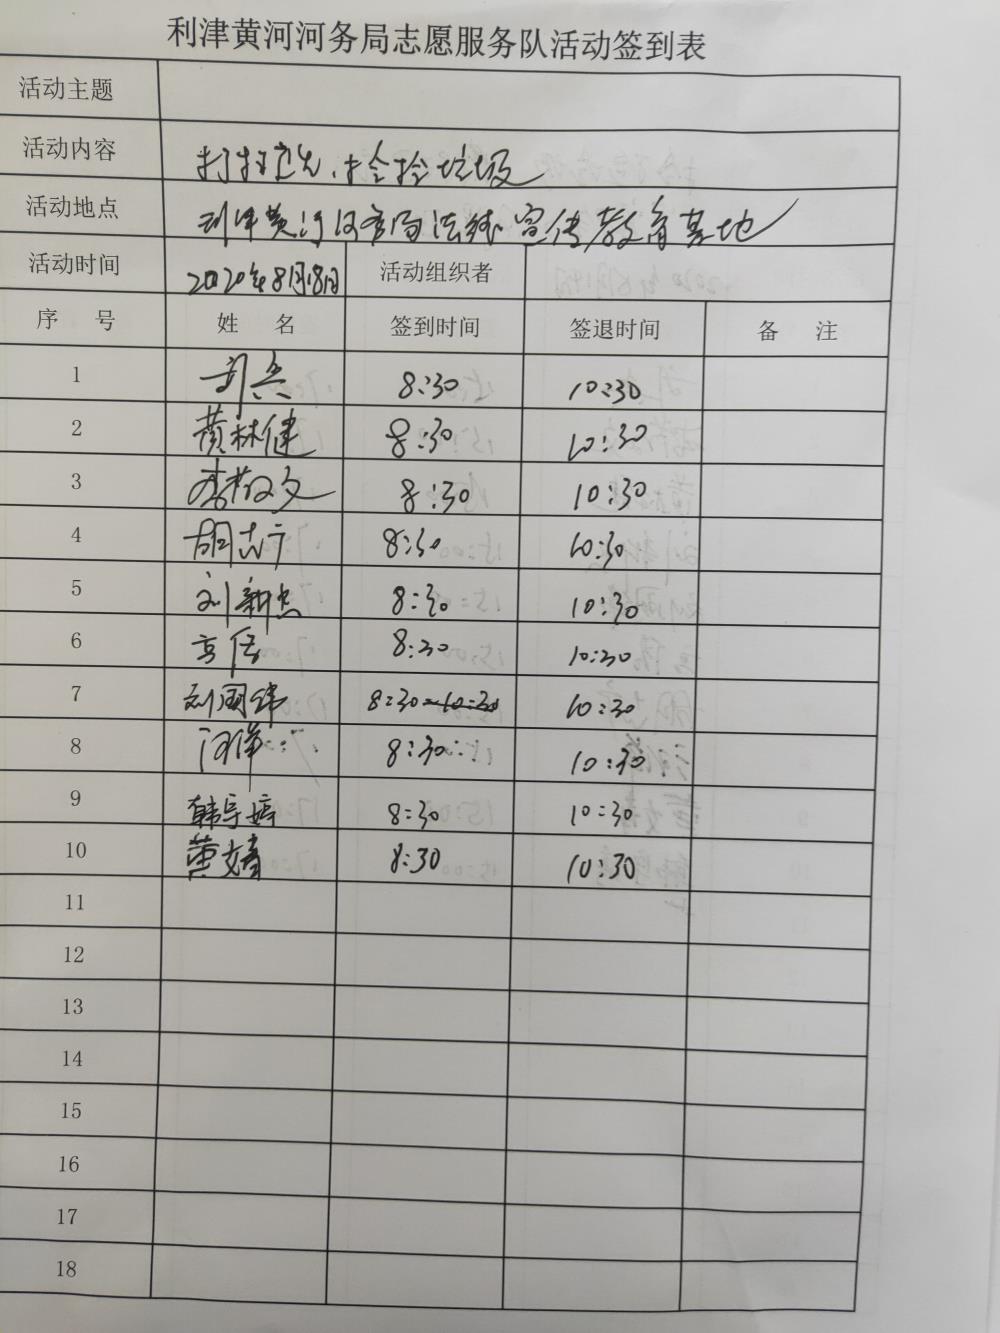 利津黄河河务局志愿服务队活动签到表
活动主题
活动内容 打扫卫生、捡捡垃圾
活动地点 利津黄河河务局法规宣传教育基地
活动时间 2020年8月18日 活动组织者
序 号 姓 名 签到时间 签退时间 备 注
1 8:30 10:30
2 黄林健 8:30 10:30
3 李敬文 8:30 10:30
4 胡志广 8:30 10:30
5 刘新忠 8:30 10:30
6 8:30 10:30
7 刘国伟 8:30 10:30 10:30
8 8:30 10:30
9 韩宇婷 8:30 10:30
10 黄婧 8:30 10:30
11
12
13
14
15
16
17
18